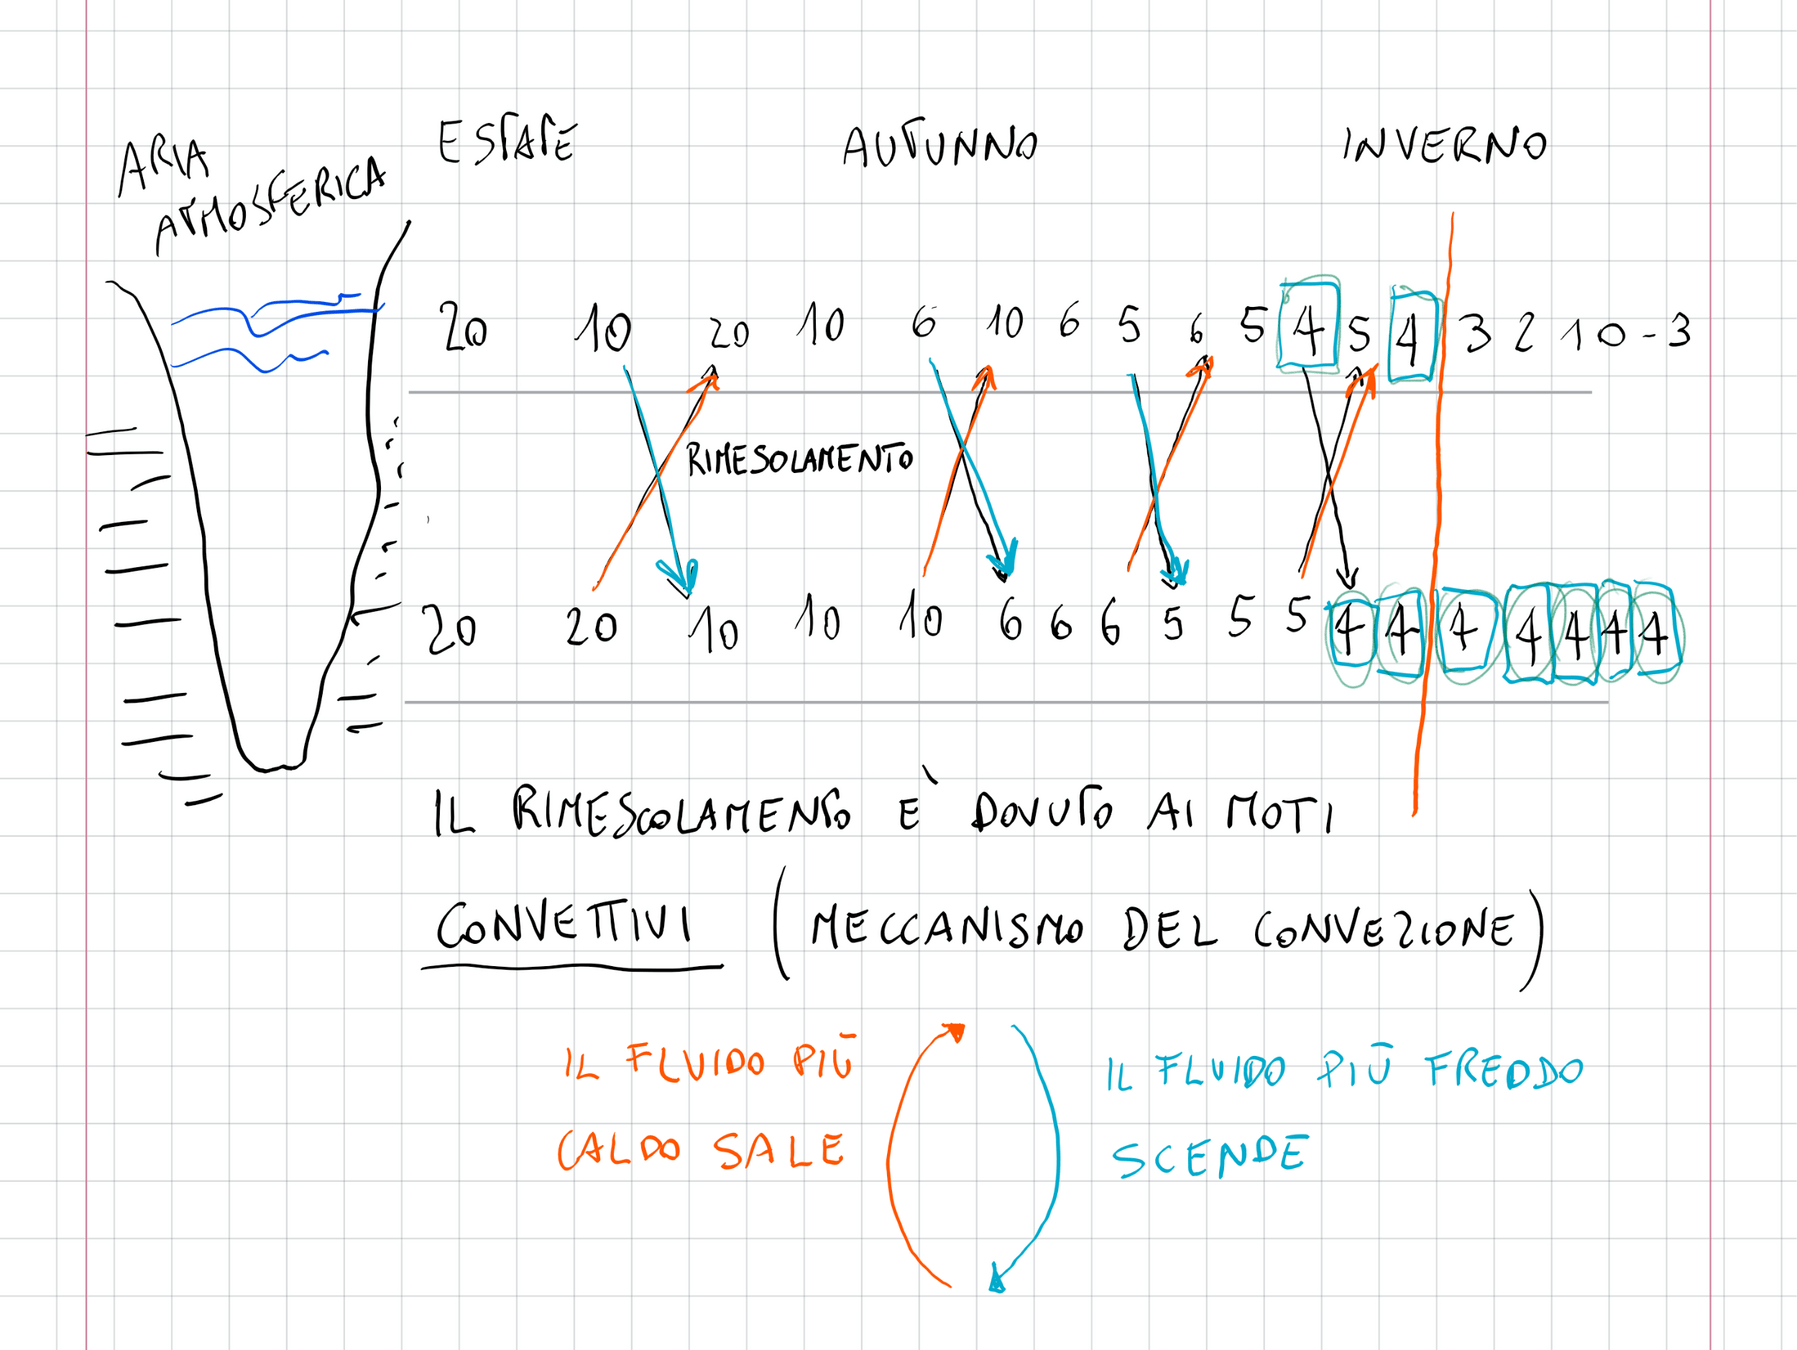 ARIA ATMOSFERICA
ESTATE AUTUNNO INVERNO
20 10 20 10 6 10 6 5 6 5 4 5 4 3 2 1 0 -3
RIMESOLAMENTO
20 20 10 10 10 6 6 6 5 5 5 4 4 4 4 4 4 4
IL RIMESCOLAMENTO È DOVUTO AI MOTI
CONVETTIVI (MECCANISMO DEL CONVEZIONE)
IL FLUIDO PIÙ
CALDO SALE
IL FLUIDO PIÙ FREDDO
SCENDE